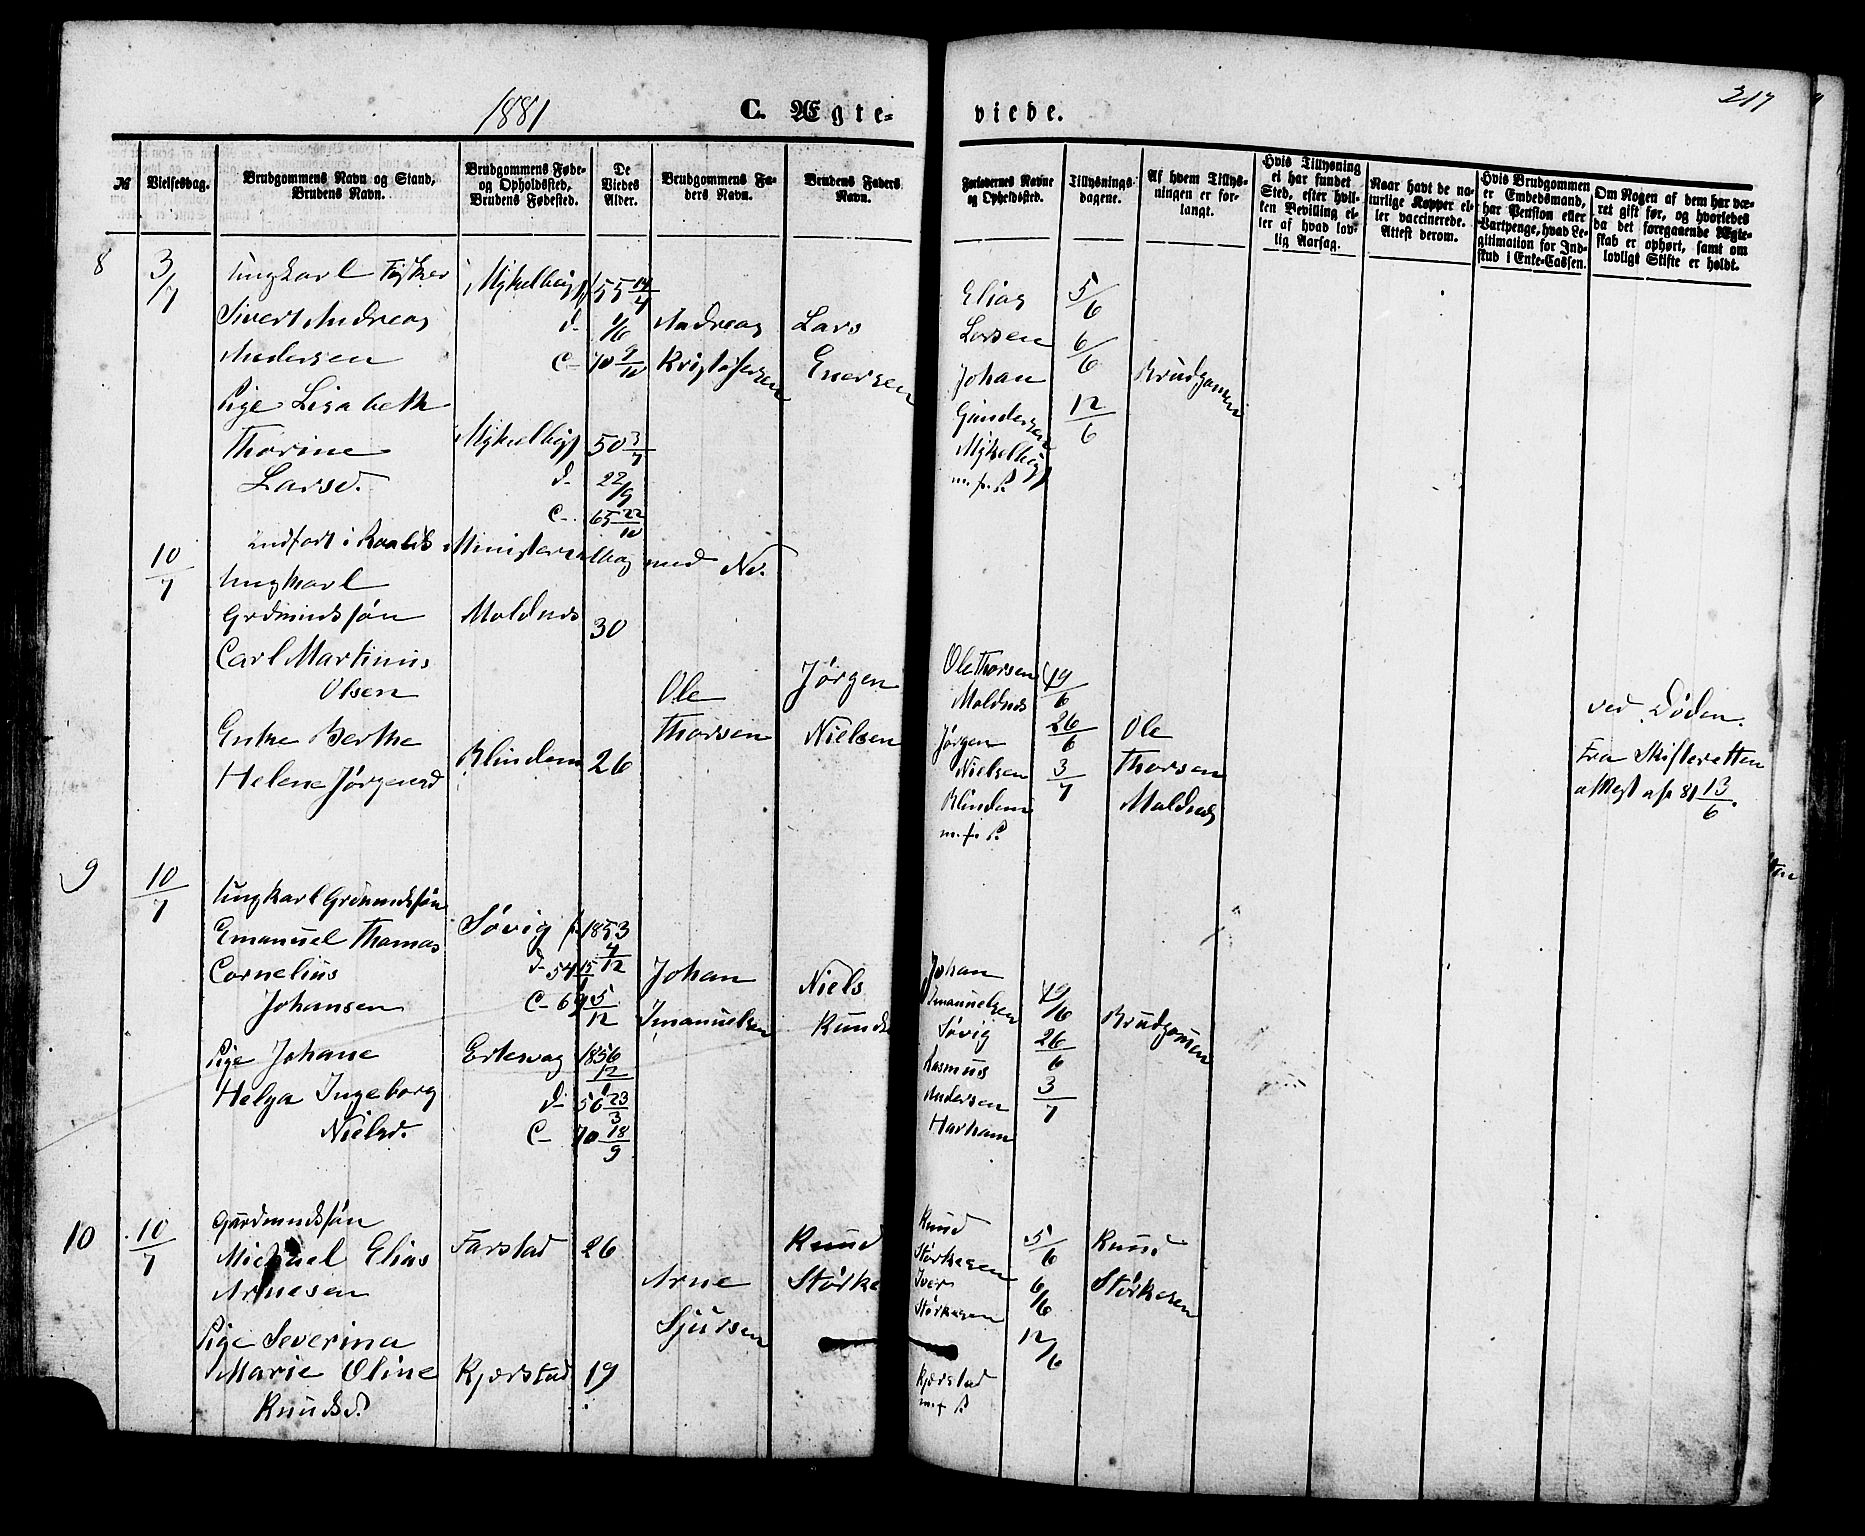 1881
C. Ægte-
viede.
217
№
Vielsesdag.
Brudgommens Navn og Stand,
Brudens Navn.
Brudgommens Føde-
og Opholdssted,
Brudens Fødested.
De
Viedes
Alder.
Brudgommens Fa-
ders Navn.
Brudens Faders
Navn.
Forlovernes Navne
og Opholdssted.
Tillysnings-
dagene.
Af hvem Tillys-
ningen er for-
langt.
Hvis Tillysning
ei har fundet
Sted, efter hvil-
ken Bevilling el-
ler af hvad lov-
lig Aarsag.
Naar havt de na-
turlige Kopper el-
ler vaccinerede.
Attest derom.
Hvis Brudgommen
er Embedsmand,
har Pension eller
Vartpenge, hvad Le-
gitimation for Ind-
skud i Enke-Cassen.
Om Nogen af dem har væ-
ret gift før, og hvorledes
da det foregaaende Ægte-
skab er ophørt, samt om
lovligt Skifte er holdt.
8
3/7
Ungkarl Fisker
Sivert Andreas
Andersen
Pige Lisabeth
Thorine
Larsd.
55 14/4
d- 1/6
C- 70 9/10
50 3/7
d- 22/9
C- 65 22/10
Andreas
Kristofersen
Lars
Enersen
Elias
Larsen
Johan
Gundersen
m. f. P.
5/6
6/6
12/6
Brudgomen
med No.
10/7
Ungkarl
Grdmandssøn
Carl Martinus
Olsen
Enke Berthe
Helene Jørgensd
Moldnes
Blindem
30
26
Ole
Thorsen
Jørgen
Nielsen
Ole Thorsen
Moldnes
Jørgen
Nielsen
Blindem
m. f. P.
19/6
26/6
3/7
Ole
Thorsen
Moldnes
ved Døden.
Fra Skifteretten
attest af 81 13/6.
9
10/7
Ungkarl Grdmandssøn
Emanuel Thomas
Cornelius
Johansen
Pige Johane
Helga Ingeborg
Nielsd.
Søvig f. 1853
4/12
d- 54 15/
C- 69 5/12
1856
12/
d- 56 23/3
C- 70 18/9
Johan
Imanuelsen
Niels
Knuds
Johan
Imanuelsen
Søvig
Rasmus
Andersen
Harham
19/6
26/6
3/7
Brudgomen
10
10/7
Gardmandssøn
Michael Elias
Arnesen
Pige Severina
Marie Oline
Knudsd.
Farstad
Kjærstad
26
19
Arne
Sjursen
Knud
Størke
Knud
Størkesen
Iver
Størkesen
Kjærstad
m. f. P.
5/6
6/6
12/6
Knud
Størkesen